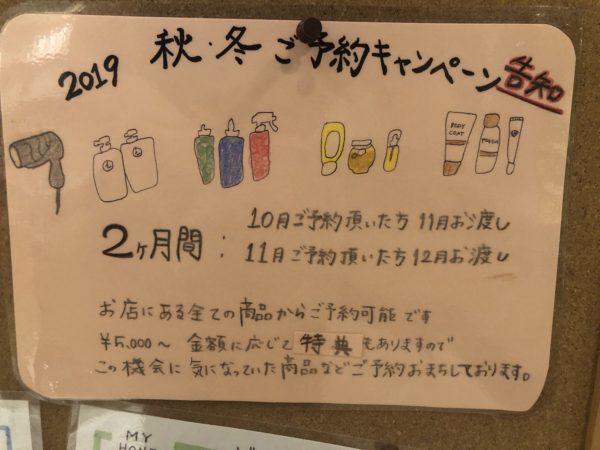 2019 秋・冬 ご予約キャンペーン 告知
BODY COAT
2ヶ月間：
10月ご予約頂いた方 11月お渡し
11月ご予約頂いた方 12月お渡し
お店にある全ての商品からご予約可能です
¥5,000〜 金額に応じて 特典 もありますので
この機会に気になっていた商品などご予約おまちしております。
MY